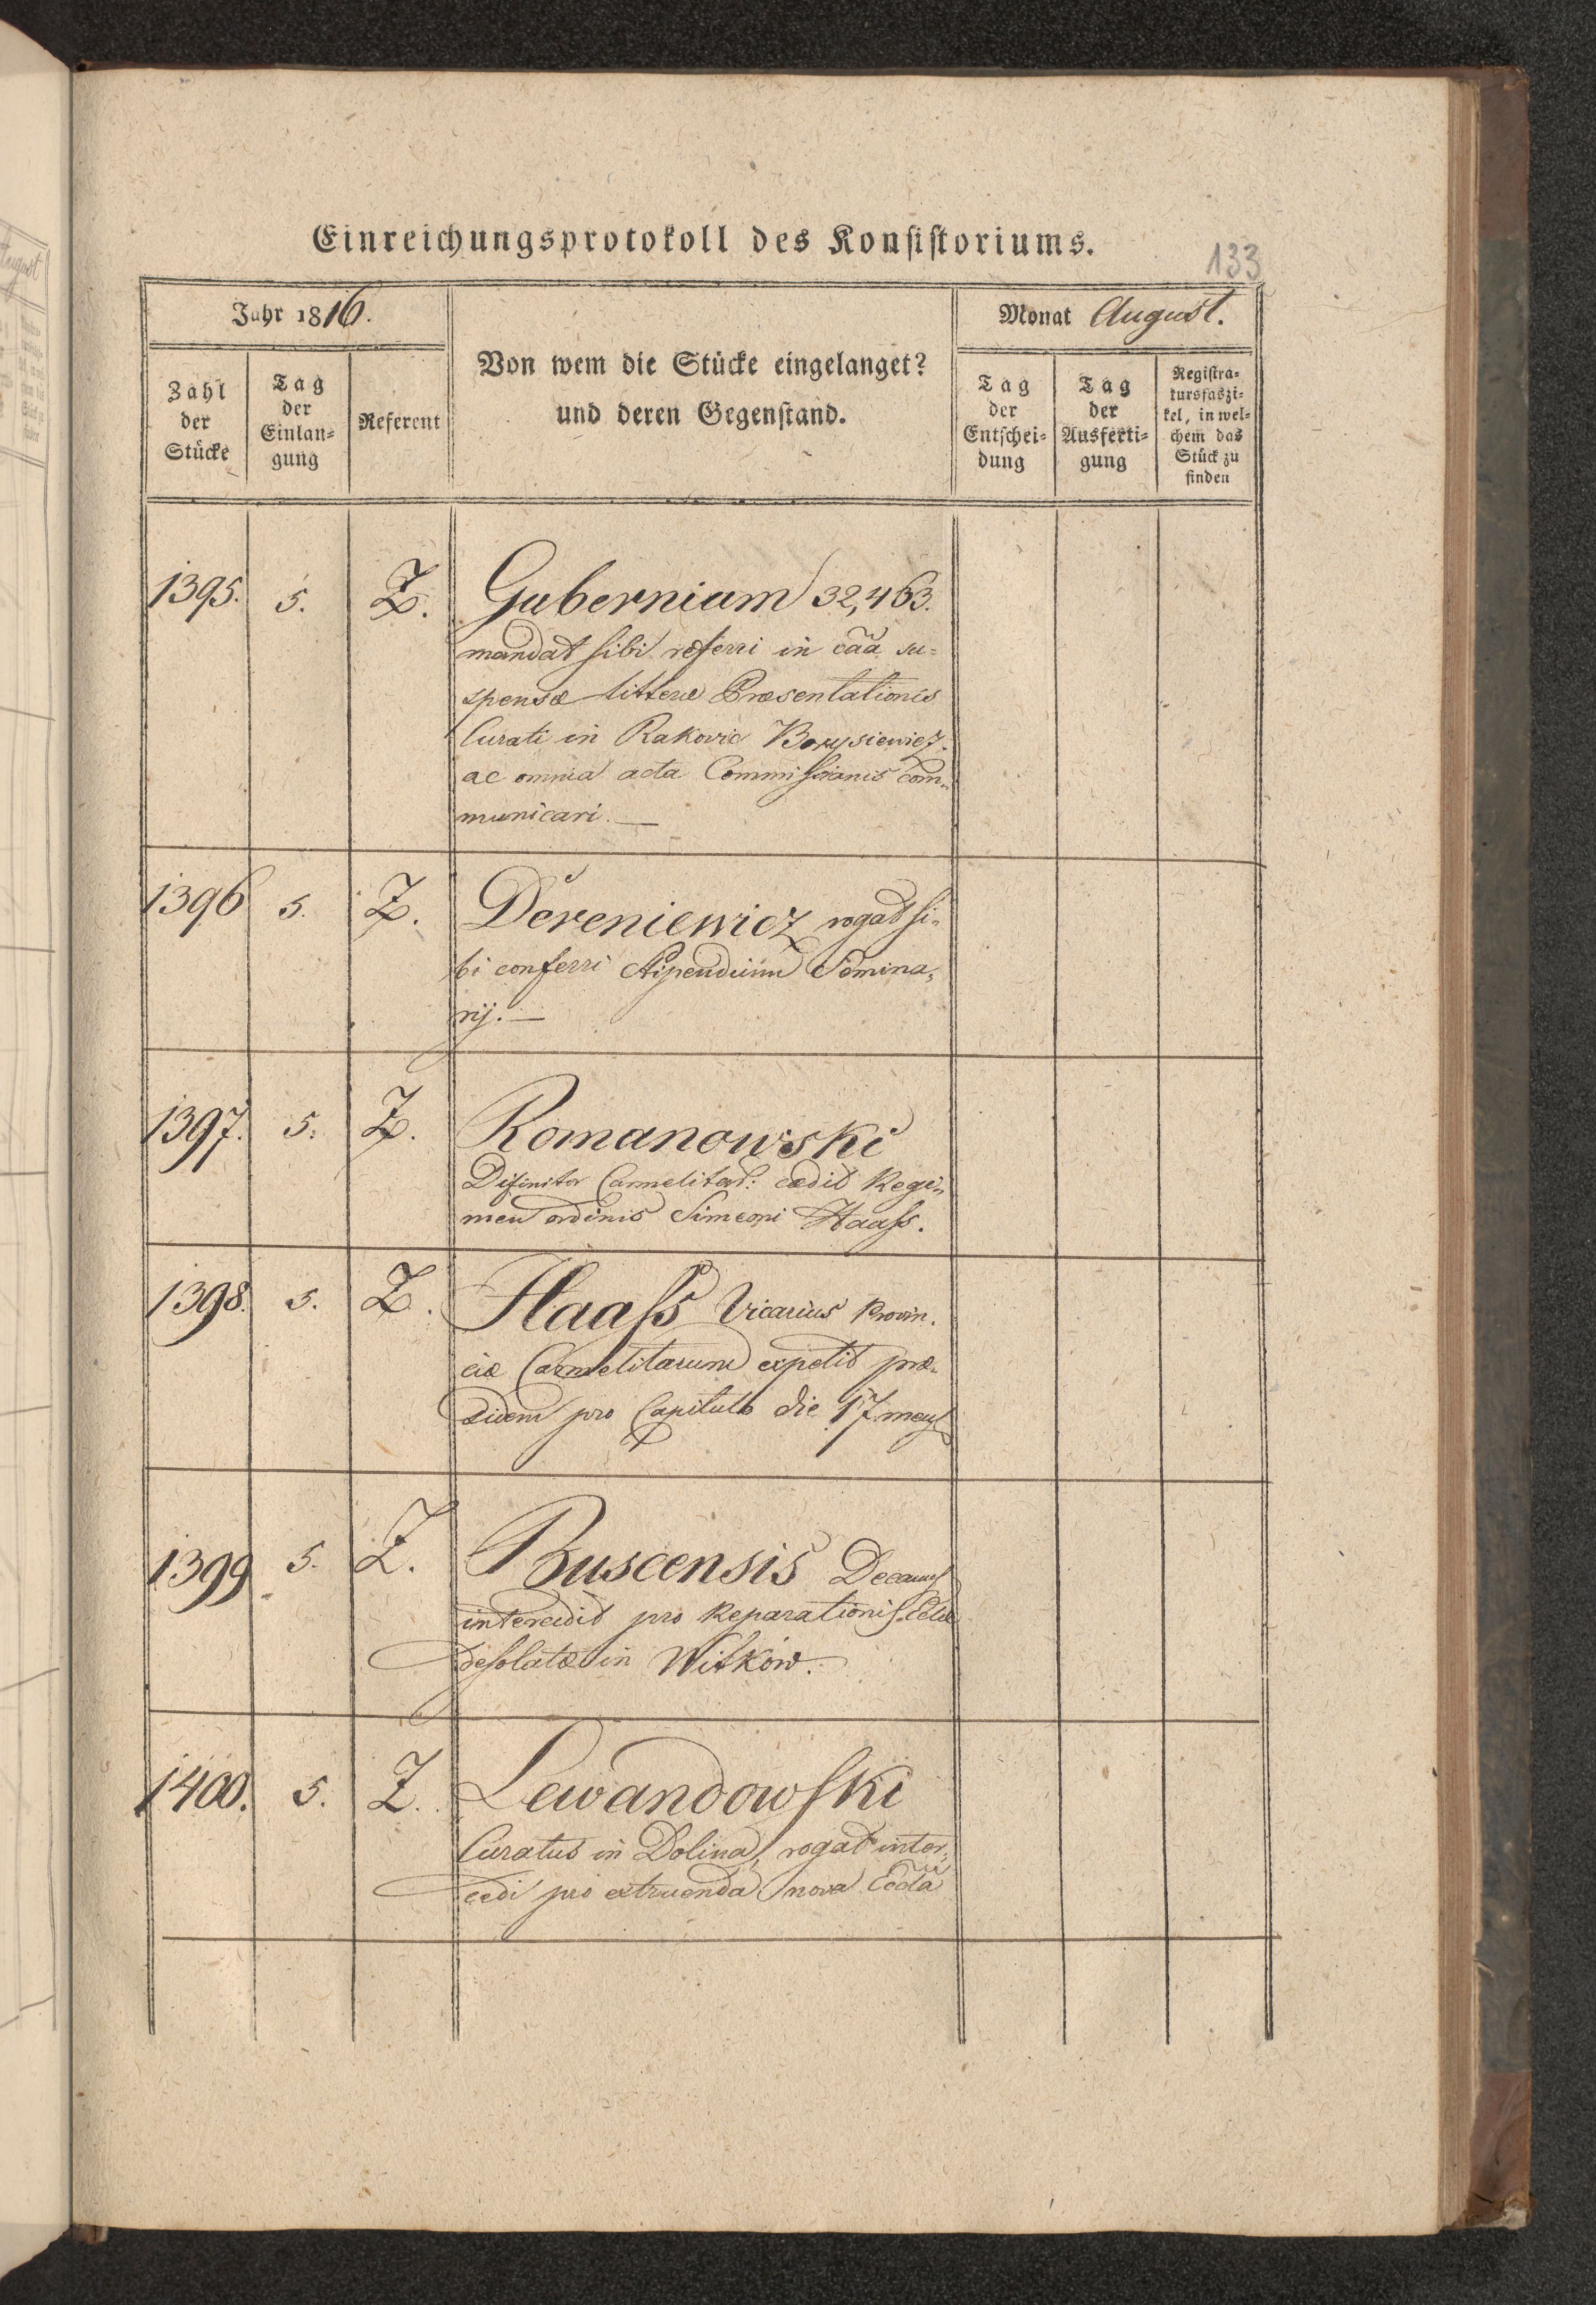 Einreichungsprotokoll des Konsistoriums.
133
Jahr 1816.
Von wem die Stücke eingelanget?
und deren Gegenstand.
Monat August.
Zahl
der
Stücke
Tag
der
Einlan=
gung
Referent
Tag
der
Entschei=
dung
Tag
der
Ausferti=
gung
Registra=
tursfaszi=
kel, in wel=
chem das
Stück zu
finden
1395. 5. Z. Gubernium 32,463.
mandat sibi referri in cãa su=
spensæ litteræ Præsentationis
Curati in Rakovic Borysiewicz.
ac omnia acta Commissionis com=
municari.—
1396 5. Z. Dereniewicz rogat si=
bi conferri Stipendium Semina=
rij.—
1397. 5. Z. Romanowski
Difinitor Carmelitar: cædit Regi=
men ordinis Simeoni Haass.
1398. 5. Z. Haass Vicarius Provin.
ciæ Carmelitarum expetit præ=
sidem pro Capitulo die 17 mens
1399 5. Z. Buscensis Decanus
intercedit pro Reparationis
desolatæ in Witków.
1400. 5. Z. Lewandowski
Curatus in Dolina, rogat inter=
cedi pro extruenda nova Eccla